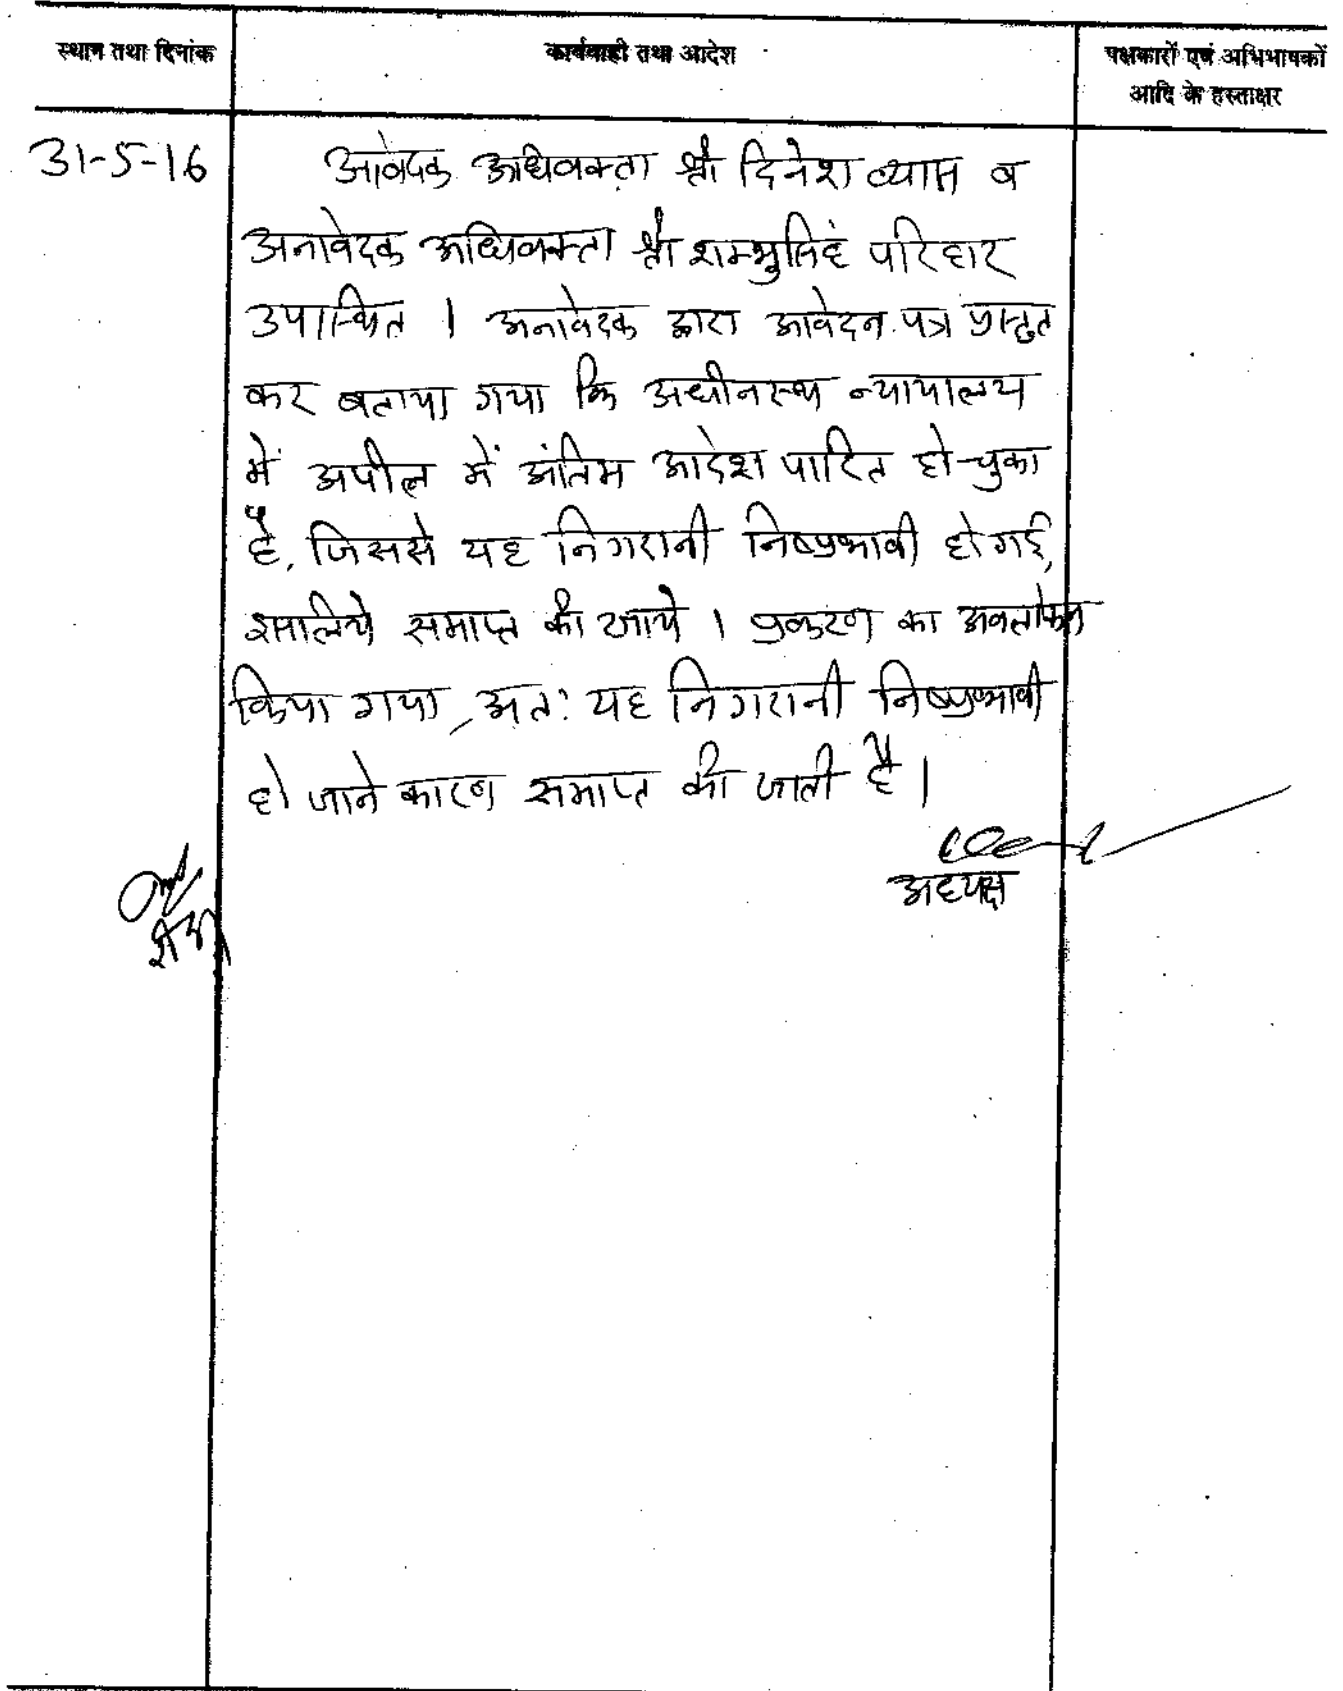 स्थान तथा दिनांक
कार्यवाही तथा आदेश
पक्षकारों एवं अभिभाषकों
आदि के हस्ताक्षर
31-5-16
आवेदक अधिवक्ता श्री दिनेश व्यास व
अनावेदक अधिवक्ता श्री शम्भुसिंह परिहार
उपस्थित । अनावेदक द्वारा आवेदन पत्र प्रस्तुत
कर बताया गया कि अधीनस्थ न्यायालय
में अपील में अंतिम आदेश पारित हो चुका
है, जिससे यह निगरानी निष्प्रभावी हो गई,
इसलिये समाप्त की जाये । प्रकरण का अवलोकन
किया गया, अतः यह निगरानी निष्प्रभावी
हो जाने कारण समाप्त की जाती है ।
अध्यक्ष